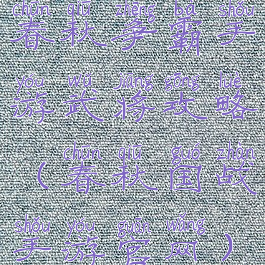 chūn qiū zhēng bà shǒu
春秋争霸手
yóu wǔ jiàng gōng lüè
游武将攻略
chūn qiū guó zhàn
（春秋国战
shǒu yóu guān wǎng
手游官网）